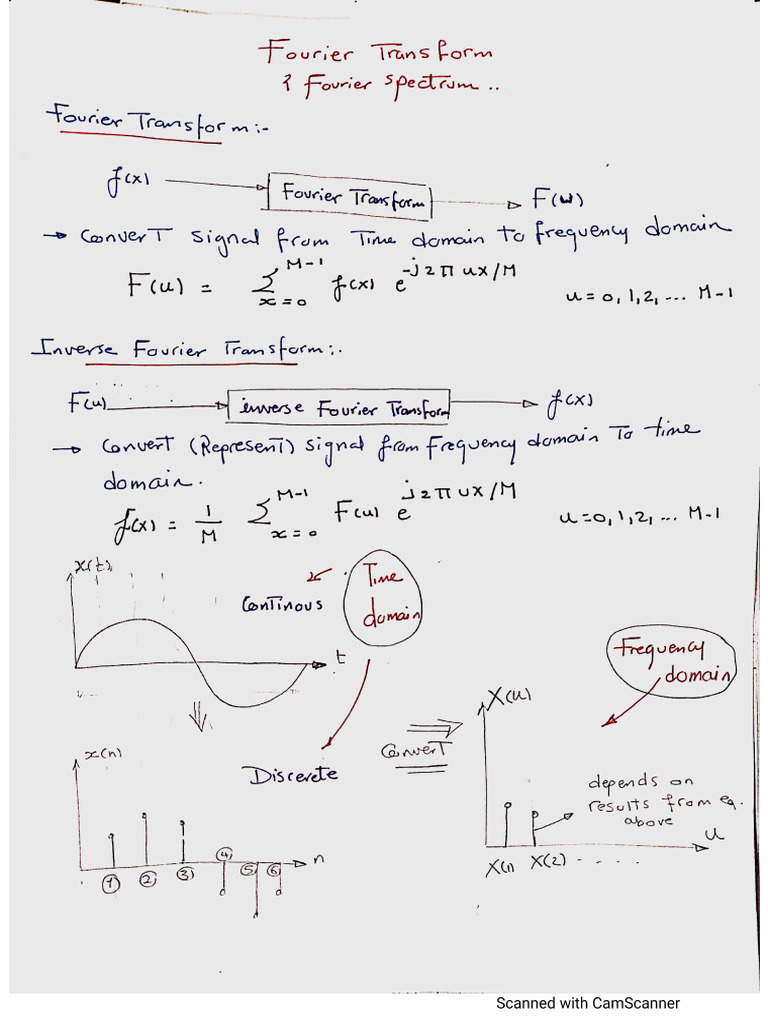 Fourier Transform
& Fourier spectrum..
Fourier Transform:-
f(x) Fourier Transform F(u)
→ Convert signal from Time domain to frequency domain
F(u) = Σ_{x=0}^{M-1} f(x) e^{-j2π ux/M} u=0,1,2,... M-1
Inverse Fourier Transform:.
F(u) inverse Fourier Transform f(x)
→ Convert (Represent) signal from frequency domain To time
domain.
f(x) = 1/M Σ_{x=0}^{M-1} F(u) e^{j2π ux/M} u=0,1,2,... M-1
x(t)
Continous
Time
domain
t
Frequency
domain
x(n)
Discerete
Convert
X(u)
depends on
results from eq.
above
u
n
① ② ③ ④ ⑤ ⑥
X(1) X(2) - - - - .
Scanned with CamScanner